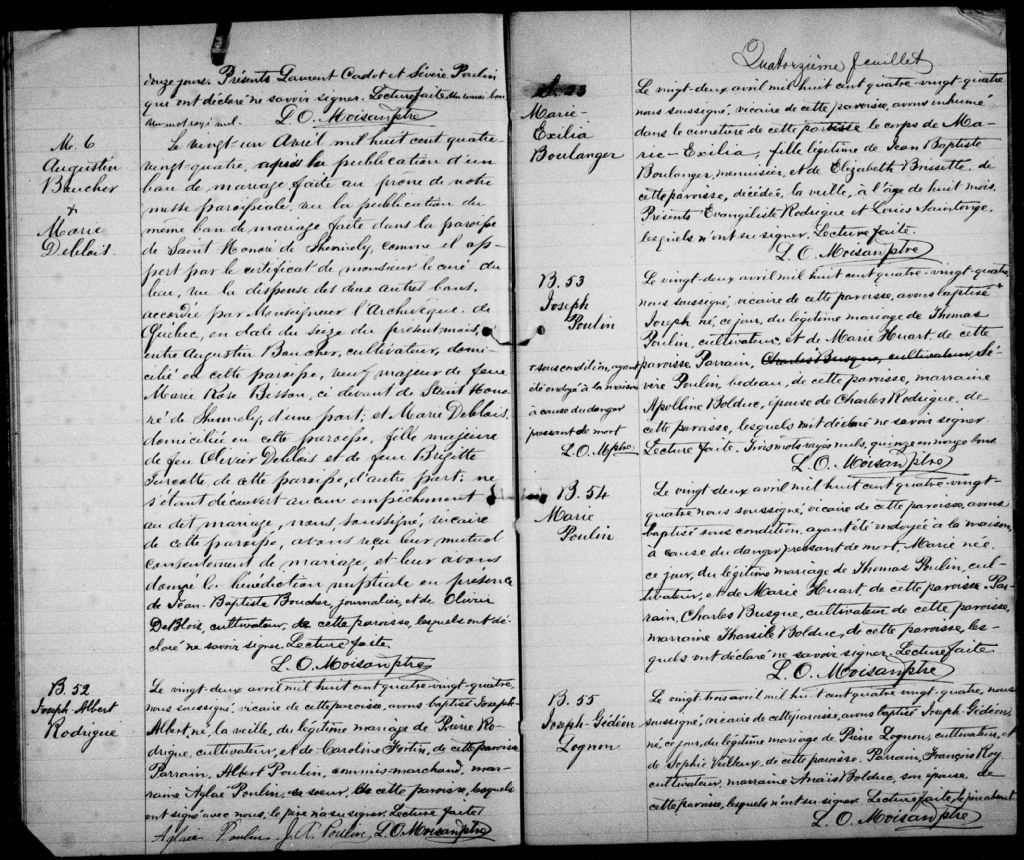 douze jours. Présents Laurent Cadot et Sévère Poulin
qui ont déclaré ne savoir signer. Lecture faite. Un renvoi bon
un mot rayé nul. L. O. Moisan ptre
M. 6
Augustin
Boucher
+
Marie
Deblois.
Le vingt-un Avril mil huit cent quatre
vingt-quatre, après la publication d'un
ban de mariage faite au prône de notre
messe paroissiale, vu la publication du
même ban de mariage faite dans la paroisse
de Saint Honoré de Shennely, comme il ap-
pert par le certificat de monsieur le curé du
lieu, vu la dispense des deux autres bans,
accordée par Monseigneur l'Archevêque de
Québec, en date du seize du présent mois,
entre Augustin Boucher, cultivateur, domi-
cilié en cette paroisse, veuf majeur de feue
Marie Rose Bisson, ci devant de Saint Hono-
ré de Shennely, d'une part; et Marie Deblois,
domiciliée en cette paroisse, fille majeure
de feu Olivier Deblois et de feue Brigitte
Turcotte de cette paroisse, d'autre part; ne
s'étant découvert aucun empêchement
au dit mariage, nous, soussigné, vicaire
de cette paroisse, avons reçu leur mutuel
consentement de mariage, et leur avons
donné la bénédiction nuptiale en présence
de Jean-Baptiste Boucher, journalier, et de Olivier
DeBlois, cultivateur, de cette paroisse, lesquels ont dé-
claré ne savoir signer. Lecture faite.
L. O. Moisan ptre
B. 52
Joseph-Albert
Rodrigue
Le vingt-deux avril mil huit cent quatre-vingt-quatre,
nous soussigné, vicaire de cette paroisse, avons baptisé Joseph-
Albert, né, la veille, du légitime mariage de Pierre Ro-
drigue, cultivateur, et de Caroline Fortin, de cette paroisse
Parrain, Albert Poulin, commis-marchand, mar-
raine Aglaé Poulin, sa soeur, de cette paroisse, lesquels
ont signé avec nous; le père n'a su signer. Lecture faite.
Aglaé Poulin J. A. Poulin, L. O. Moisan ptre
Quatorzième feuillet
Marie-
Exilia
Boulanger
Le vingt-deux avril mil huit cent quatre-vingt-quatre
nous soussigné, vicaire de cette paroisse, avons inhumé
dans le cimetière de cette paroisse le corps de Ma-
rie-Exilia, fille légitime de Jean Baptiste
Boulanger, menuisier, et de Elizabeth Brissette, de
cette paroisse, décédée, la veille, à l'âge de huit mois.
Présents Evangéliste Rodrigue et Louis Saintonge,
lesquels n'ont su signer. Lecture faite.
L. O. Moisan ptre
B. 53
Joseph
Poulin
+ sous condition, ayant
été ondoyé à la maison
à cause du danger
pressant de mort
L. O. M ptre
Le vingt-deux avril mil huit cent quatre-vingt-quatre,
nous soussigné, vicaire de cette paroisse, avons baptisé +
Joseph né, ce jour, du légitime mariage de Thomas
Poulin, cultivateur, et de Marie Huart, de cette
paroisse. Parrain, Charles Busque, cultivateur, Sé-
vère Poulin, bedeau, de cette paroisse, marraine
Apolline Bolduc, épouse de Charles Rodrigue, de
cette paroisse, lesquels ont déclaré ne savoir signer
Lecture faite. Trois mots rayés nuls, quinze en marge bons.
L. O. Moisan ptre
B. 54
Marie
Poulin
Le vingt deux avril mil huit cent quatre-vingt-
quatre nous soussigné, vicaire de cette paroisse, avons
baptisé sous condition, ayant été ondoyée à la maison,
à cause du danger pressant de mort, Marie née,
ce jour, du légitime mariage de Thomas Poulin, cul-
tivateur, et de Marie Huart, de cette paroisse. Par-
rain, Charles Busque, cultivateur de cette paroisse,
marraine Tharsile Bolduc, de cette paroisse, les-
quels ont déclaré ne savoir signer. Lecture faite.
L. O. Moisan ptre
B. 55
Joseph-Gédéon
Lognon
Le vingt trois avril mil huit cent quatre vingt-quatre, nous
soussigné, vicaire de cette paroisse, avons baptisé Joseph-Gédéon,
né, ce jour, du légitime mariage de Pierre Lognon, cultivateur, et
de Sophie Veilleux, de cette paroisse. Parrain, François Roy
cultivateur, marraine Anaïs Bolduc, son épouse, de
cette paroisse, lesquels n'ont su signer. Lecture faite, le père absent.
L. O. Moisan ptre